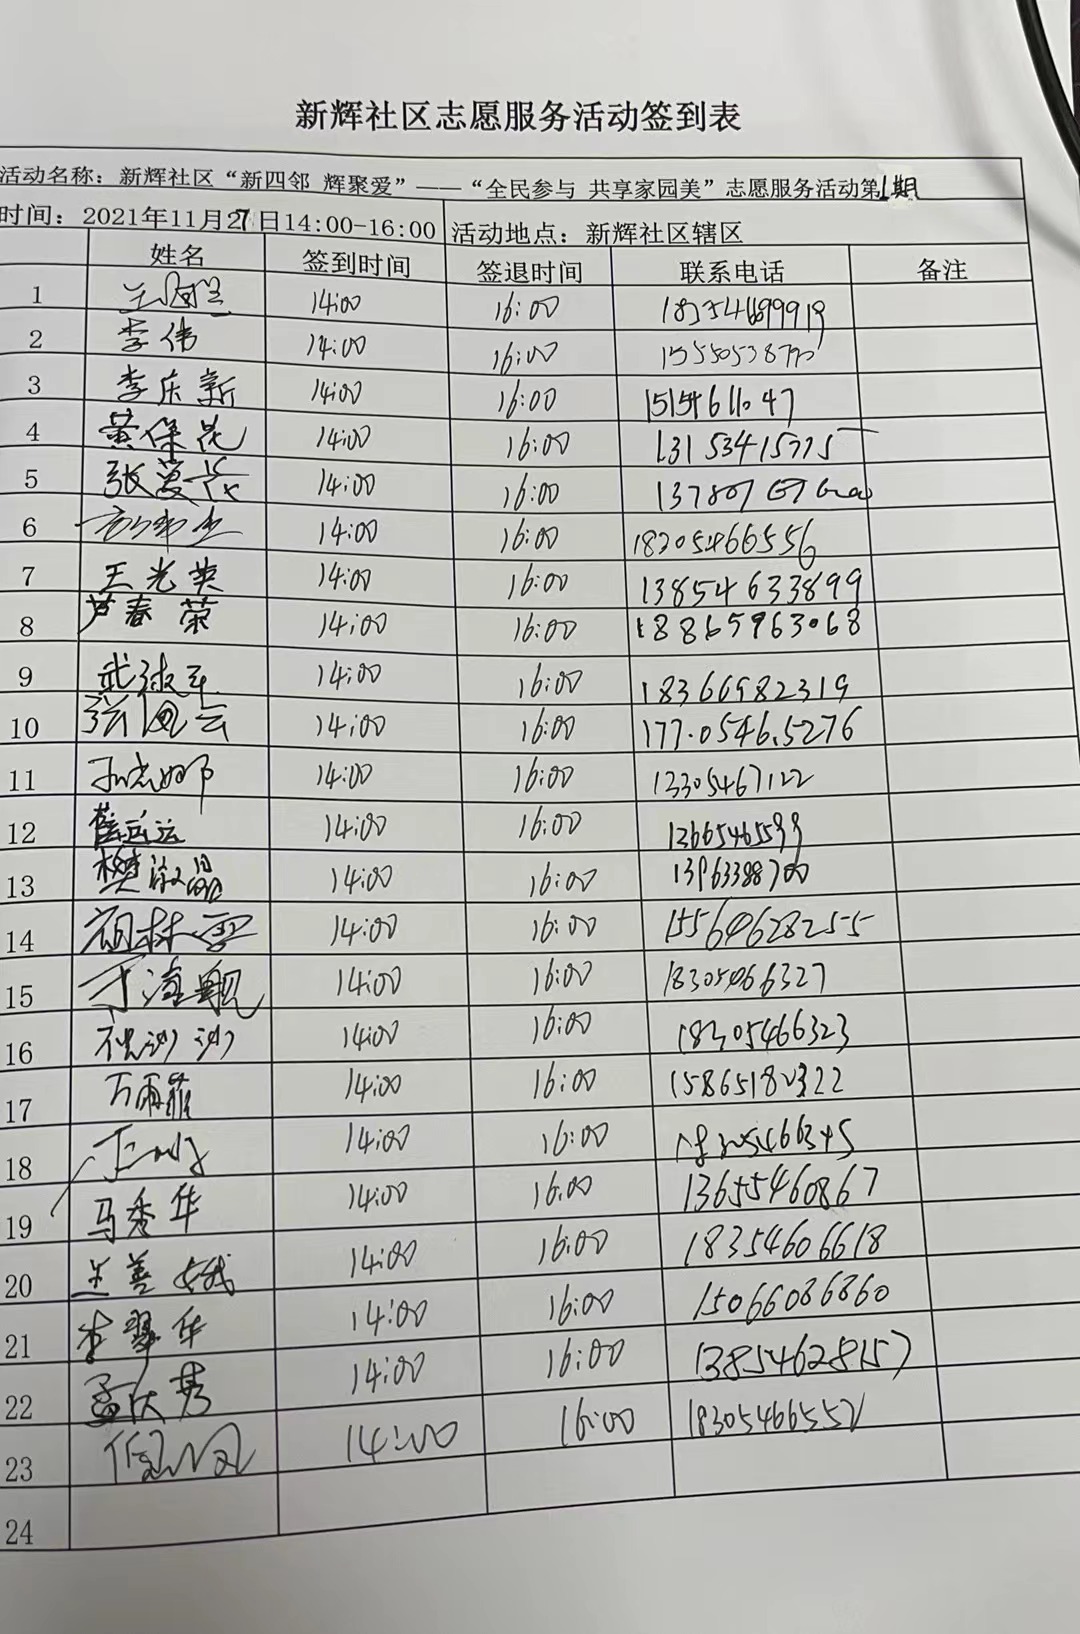 新辉社区志愿服务活动签到表
活动名称：新辉社区“新四邻 辉聚爱”——“全民参与 共享家园美”志愿服务活动第1期
时间：2021年11月27日14:00-16:00 活动地点：新辉社区辖区
姓名 签到时间 签退时间 联系电话 备注
1 14:00 16:00
2 李伟 14:00 16:00
3 李庆新 14:00 16:00
4 黄保花 14:00 16:00 13153415775
5 张 14:00 16:00
6 14:00 16:00 18205466556
7 王光英 14:00 16:00 13854633899
8 芦春荣 14:00 16:00 18865963068
9 武淑军 14:00 16:00 18366982319
10 张凤云 14:00 16:00 177.0546.5276
11 14:00 16:00 13305467122
12 14:00 16:00 13665465599
13 樊淑晶 14:00 16:00 13963388700
14 胡林雪 14:00 16:00
15 于海靓 14:00 16:00 18305466327
16 祝沙沙 14:00 16:00 18305466323
17 万雨菲 14:00 16:00 15865182322
18 14:00 16:00 18305466345
19 马秀华 14:00 16:00 13655460867
20 兰善娥 14:00 16:00 18354606618
21 李翠华 14:00 16:00 15066086860
22 孟庆秀 14:00 16:00 13854628157
23 14:00 16:00 18305466552
24